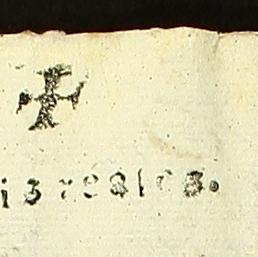 ✠
is reales.